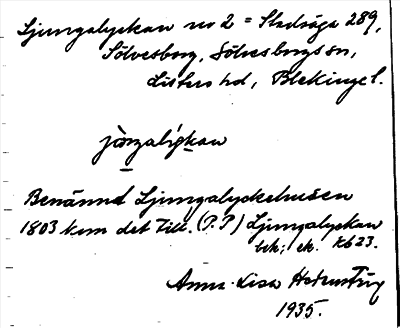 Ljungalyckan no 2 = Stadsäga 289,
Sölvesborg, Sölvesborgs sn,
Listers hd, Blekinge l.
jòŋalýkan
Benämnd Ljungalyckehusen
1803 kom det till. (P.P) Ljungalyckan
bek; ek. kb 23.
Anna-Lisa
1935.